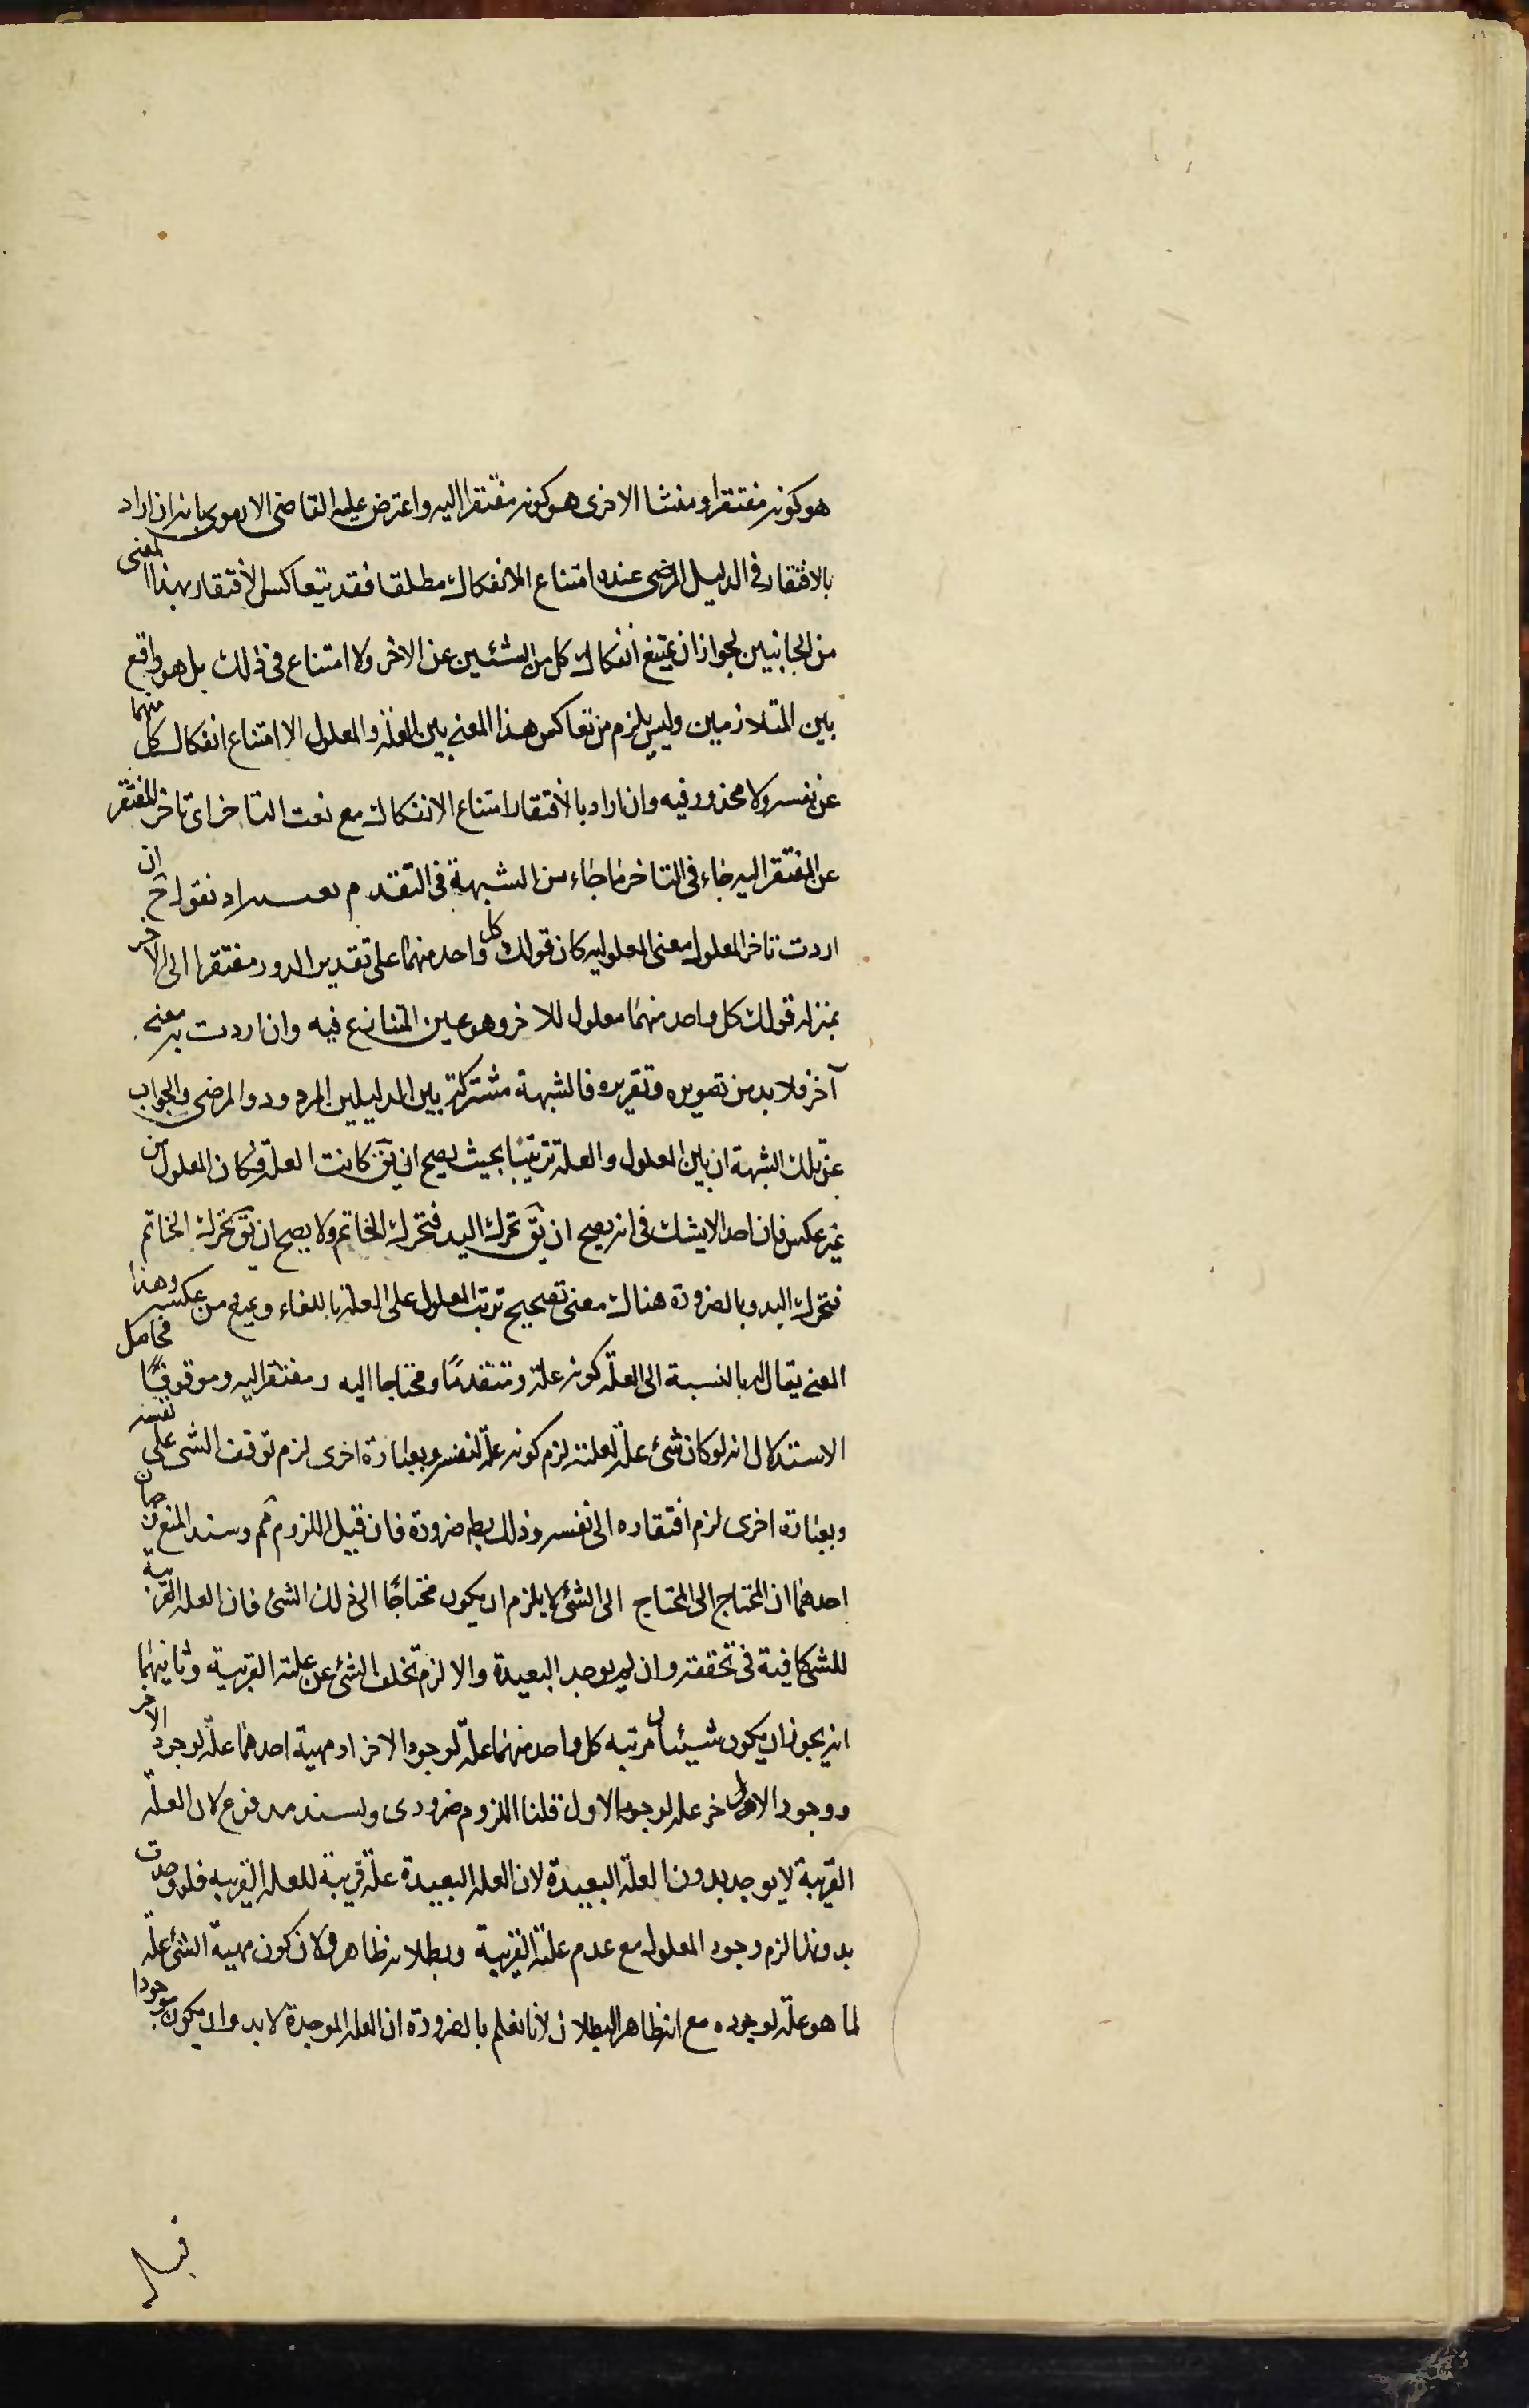 هو كونه مفتقرا ومنشا الاخرى هو كونه مفتقرا اليه واعترض عليه القاضى الارموى بانه ان اراد
بالافتقار فى الدليل المرضى عنده امتناع الانفكاك مطلقا فقد يتعاكس الافتقار بهذا المعنى
من الجانبين لجواز ان يمتنع انفكاك كل من الشئين عن الاخر ولا امتناع فى ذلك بل هو واقع
بين المتلازمين وليس يلزم من تعاكس هذا المعنى بين العلة والمعلول الا امتناع انفكاك كل منهما
عن نفسه ولا محذور فيه وان اراد بالافتقار امتناع الانفكاك مع نعت التاخر اى تاخر المفتقر
عن المفتقر اليه جاء فى التاخر ما جاء من الشبهة فى التقدم نقول ح ان
اردت تاخر المعلول معنى المعلوليه كان قولك كل واحد منهما على تقدير الدور مفتقرا الى الاخر
بمنزله قولك كل واحد منهما معلول للاخر وهو عين المتنازع فيه وان اردت به معنى
آخر فلا بد من تصويره وتقريره فالشبهة مشتركة بين الدليلين المردود والمرضى والجواب
عن تلك الشبهة ان بين المعلول والعلة ترتيبا بحيث يصح ان يق كانت العلة فكان المعلول من
غير عكس فان احدا لا يشك فى انه يصح ان يق تحرك اليد فتحرك الخاتم ولا يصح ان يق تحرك الخاتم
فتحرك اليد وبالضرورة هناك معنى تصحيح ترتب المعلول على العلة بالفاء ويمنع من عكسه وهذا
المعنى يقال له بالنسبة الى العلة كونه علة ومتقدمًا ومحتاجا اليه ومفتقرا اليه وموقوفًا فحاصل
الاستدلال انه لو كان شئ علة لعلته لزم كونه علة لنفسه وبعبارة اخرى لزم توقف الشى على نفسه
وبعبارة اخرى لزم افتقاره الى نفسه وذلك بط ضرورة فان قيل اللزوم مم وسند المنع وجهان
احدهما ان المحتاج الى المحتاج الى الشئ لا يلزم ان يكون محتاجًا الى ذلك الشئ فان العله القريبة
للشى كافية فى تحققه وان لم يوجد البعيدة والا لزم تخلف الشئ عن علته القريبة وثانيهما
انه يجوز ان يكون شيئان مرتبه كل واحد منهما علة لوجود الاخر او مهية احدهما علة لوجود الاخر
ووجود الاخر علة لوجود الاول قلنا اللزوم ضرورى والسند مدفوع لان العلة
القريبة لا يوجد بدون العلة البعيدة لان العله البعيدة علة قريبة للعله القريبه فلو وجدت
بدونها لزم وجود المعلول مع عدم علته القريبة وبطلانه ظاهر ولان كون مهية الشئ علة
لما هو علة لوجوده مع انه ظاهر البطلان لانا نعلم بالضرورة ان العله الموجدة لا بد وان يكون موجودا